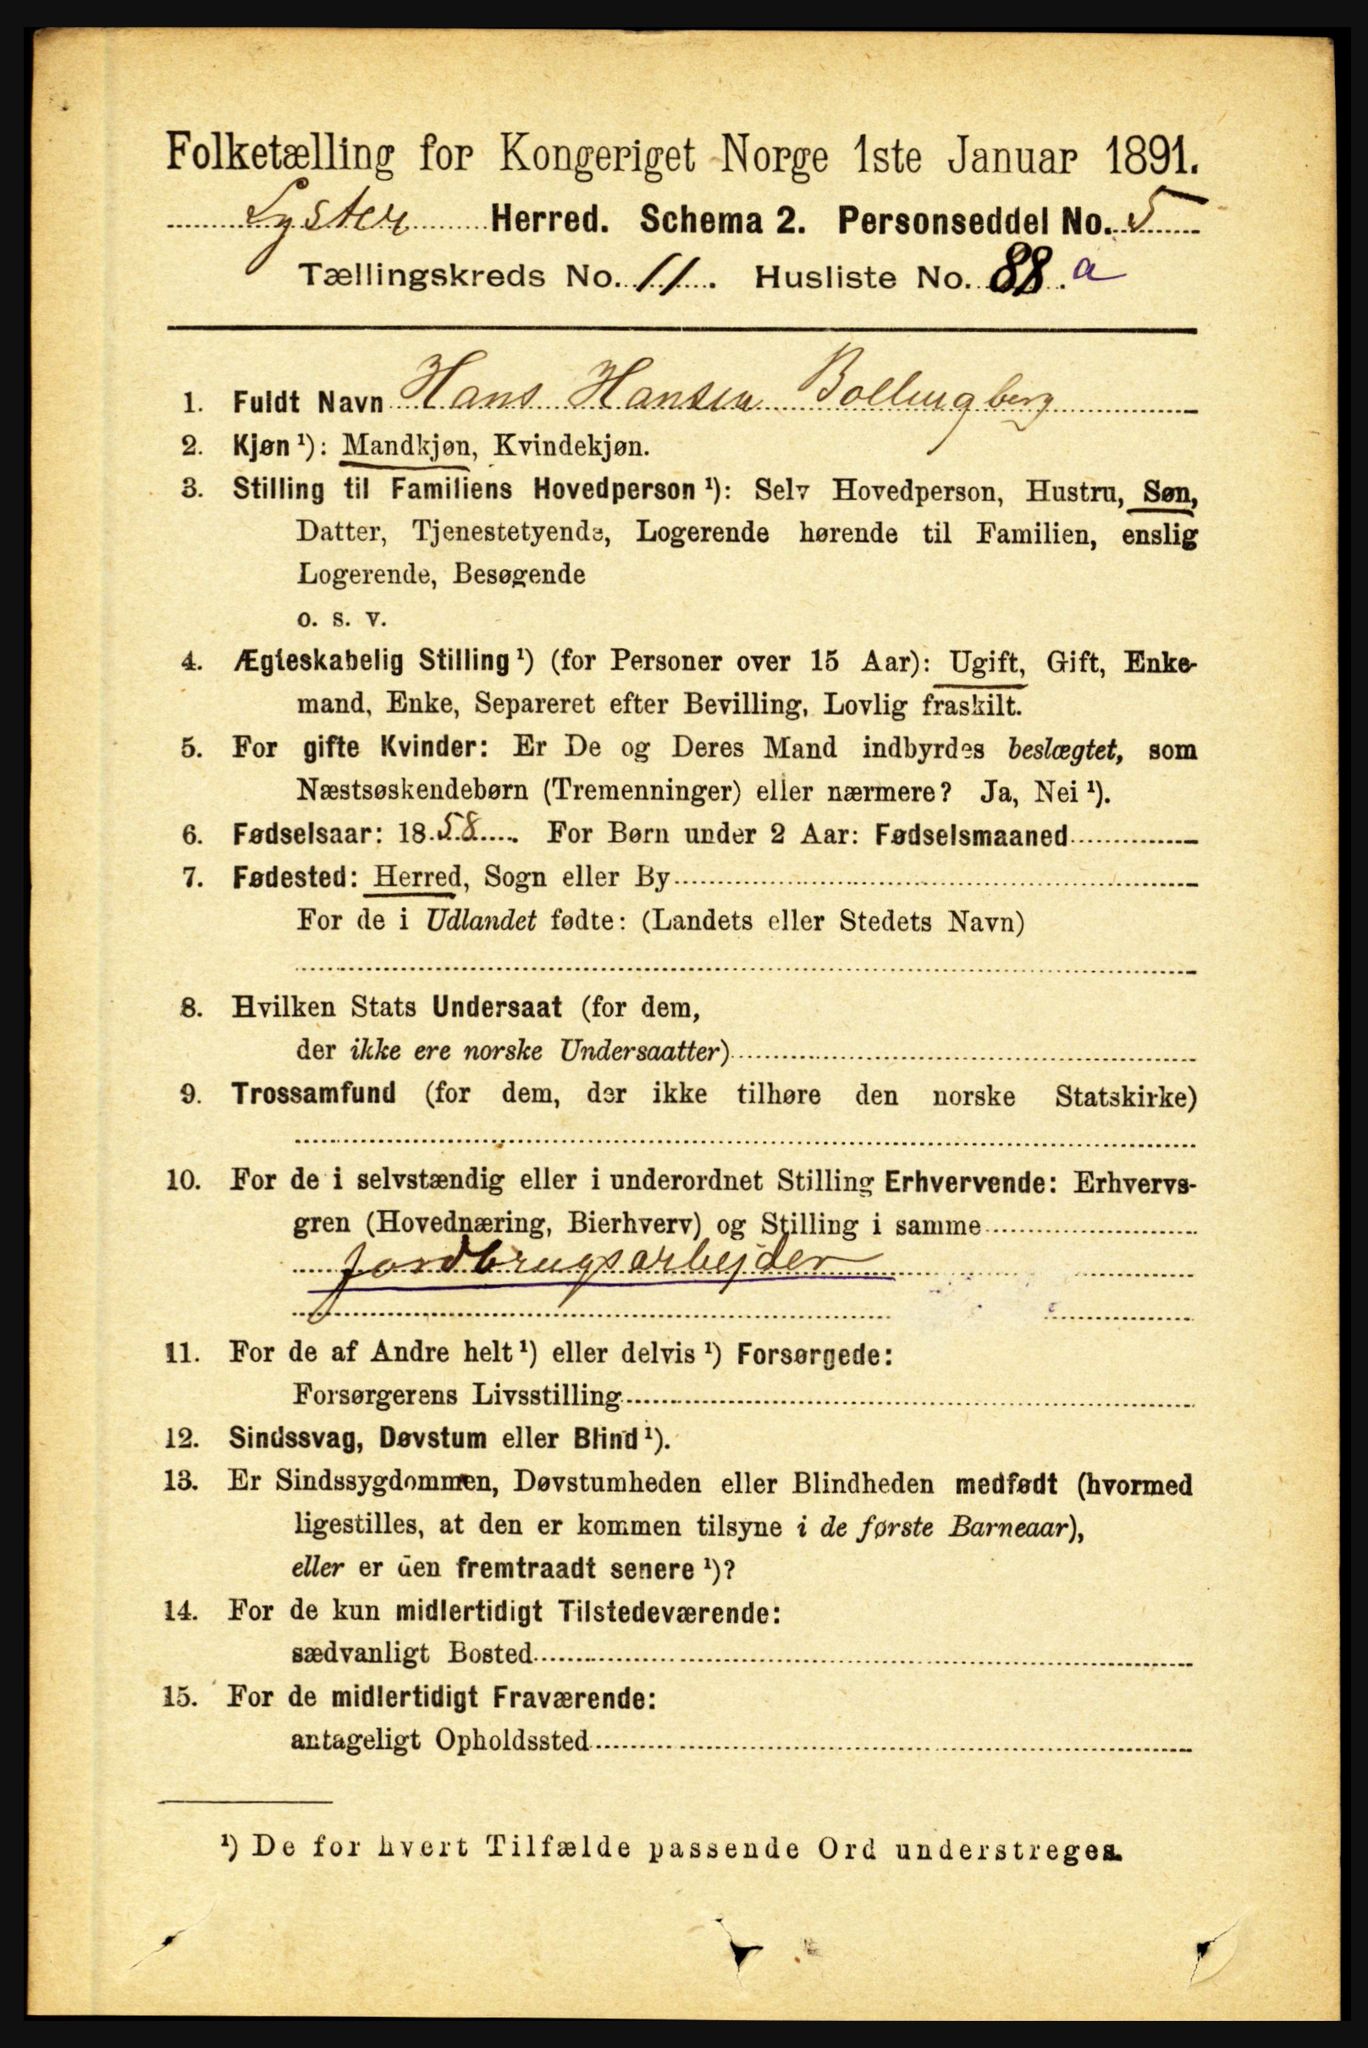 Folketælling for Kongeriget Norge 1ste Januar 1891.
Lyster Herred. Schema 2. Personseddel No. 5
Tællingskreds No. 11. Husliste No. 88. a
1. Fuldt Navn Hans Hansen Bollingberg
2. Kjøn ¹): Mandkjøn, Kvindekjøn.
3. Stilling til Familiens Hovedperson ¹): Selv Hovedperson, Hustru, Søn,
Datter, Tjenestetyende, Logerende hørende til Familien, enslig
Logerende, Besøgende
o. s. v.
4. Ægteskabelig Stilling ¹) (for Personer over 15 Aar): Ugift, Gift, Enke-
mand, Enke, Separeret efter Bevilling, Lovlig fraskilt.
5. For gifte Kvinder: Er De og Deres Mand indbyrdes beslægtet, som
Næstsøskendebørn (Tremenninger) eller nærmere? Ja, Nei ¹).
6. Fødselsaar: 1858. For Børn under 2 Aar: Fødselsmaaned
7. Fødested: Herred, Sogn eller By
For de i Udlandet fødte: (Landets eller Stedets Navn)
8. Hvilken Stats Undersaat (for dem,
der ikke ere norske Undersaatter)
9. Trossamfund (for dem, der ikke tilhøre den norske Statskirke)
10. For de i selvstændig eller i underordnet Stilling Erhvervende: Erhvervs-
gren (Hovednæring, Bierhverv) og Stilling i samme
Jordbrugsarbejder
11. For de af Andre helt ¹) eller delvis ¹) Forsørgede:
Forsørgerens Livsstilling
12. Sindssvag, Døvstum eller Blind ¹).
13. Er Sindssygdommen, Døvstumheden eller Blindheden medfødt (hvormed
ligestilles, at den er kommen tilsyne i de første Barneaar),
eller er den fremtraadt senere ¹)?
14. For de kun midlertidigt Tilstedeværende:
sædvanligt Bosted
15. For de midlertidigt Fraværende:
antageligt Opholdssted
¹) De for hvert Tilfælde passende Ord understreges.